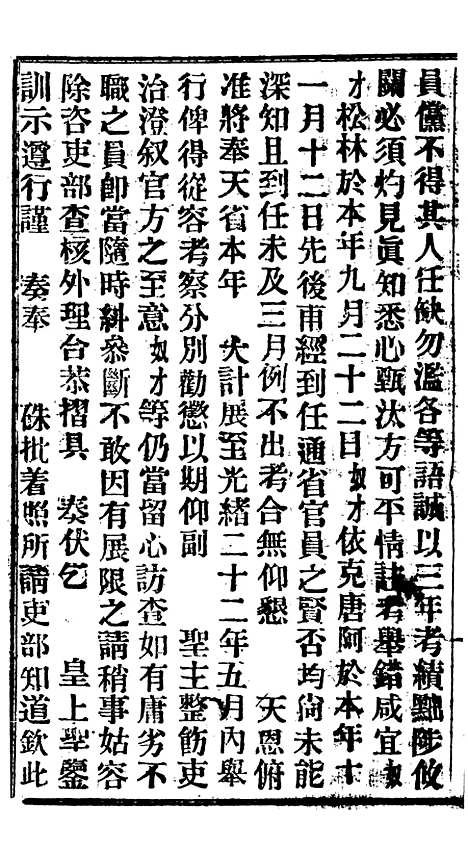 員儻不得其人任缺勿濫各等語誠以三年考績黜陟攸
關必須灼見眞知悉心甄汰方可平情註考舉錯咸宜奴
才松林於本年九月二十二日奴才依克唐阿於本年十
一月十二日先後甫經到任通省官員之賢否均尙未能
深知且到任未及三月例不出考合無仰懇　天恩俯
准將奉天省本年　大計展至光緖二十二年五月內舉
行俾得從容考察分別勸懲以期仰副　聖主整飭吏
治澄叙官方之至意奴才等仍當留心訪查如有庸劣不
職之員卽當隨時糾參斷不敢因有展限之請稍事姑容
除咨吏部查核外理合恭摺具　奏伏乞　皇上聖鑒
訓示遵行謹　奏奉　硃批着照所請吏部知道欽此